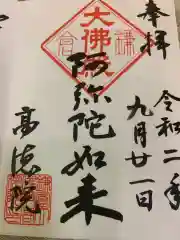 奉拝
令和二年
九月廿一日
大佛殿
阿弥陀如来
高徳院